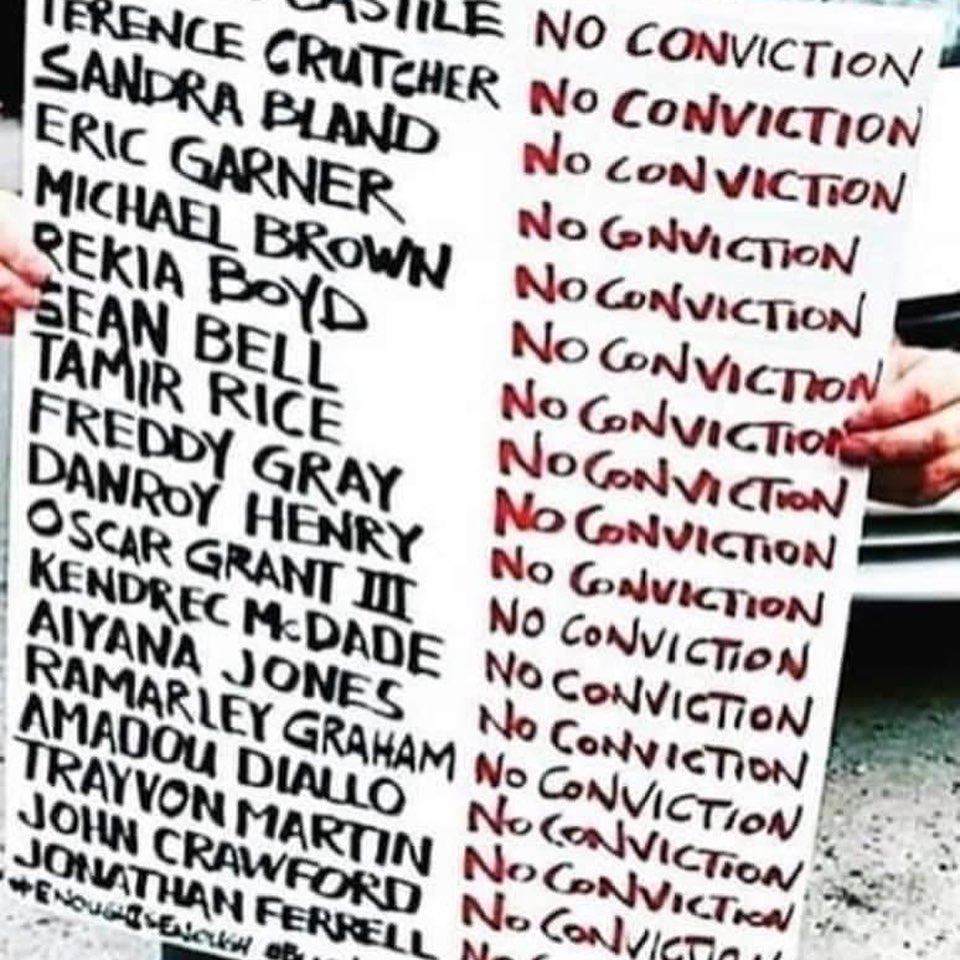 CASTILE NO CONVICTION
TERENCE CRUTCHER NO CONVICTION
SANDRA BLAND NO CONVICTION
ERIC GARNER NO CONVICTION
MICHAEL BROWN NO CONVICTION
REKIA BOYD NO CONVICTION
SEAN BELL NO CONVICTION
TAMIR RICE NO CONVICTION
FREDDY GRAY NO CONVICTION
DANROY HENRY NO CONVICTION
OSCAR GRANT III NO CONVICTION
KENDREC McDADE NO CONVICTION
AIYANA JONES NO CONVICTION
RAMARLEY GRAHAM NO CONVICTION
AMADOU DIALLO NO CONVICTION
TRAYVON MARTIN NO CONVICTION
JOHN CRAWFORD NO CONVICTION
JONATHAN FERRELL NO
#ENOUGHISENOUGH